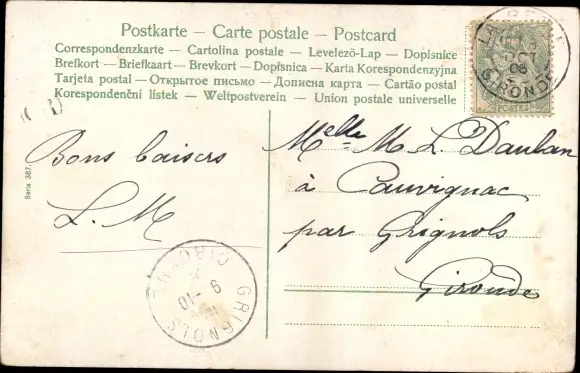 Postkarte — Carte postale — Postcard
Correspondenzkarte — Cartolina postale — Levelező-Lap — Dopisnice
Brefkort — Briefkaart — Brevkort — Dopisnica — Karta Korespondenzyjna
Tarjeta postal — Открытое письмо — Дописна карта — Cartão postal
Korespondenční listek — Weltpostverein — Union postale universelle
GIRONDE
POSTES
Bons baisers
L. M
Serie 367.
Melle M. L. Daulan
à Cauvignac
par Grignols
Gironde
GRIGNOLS
GIRONDE